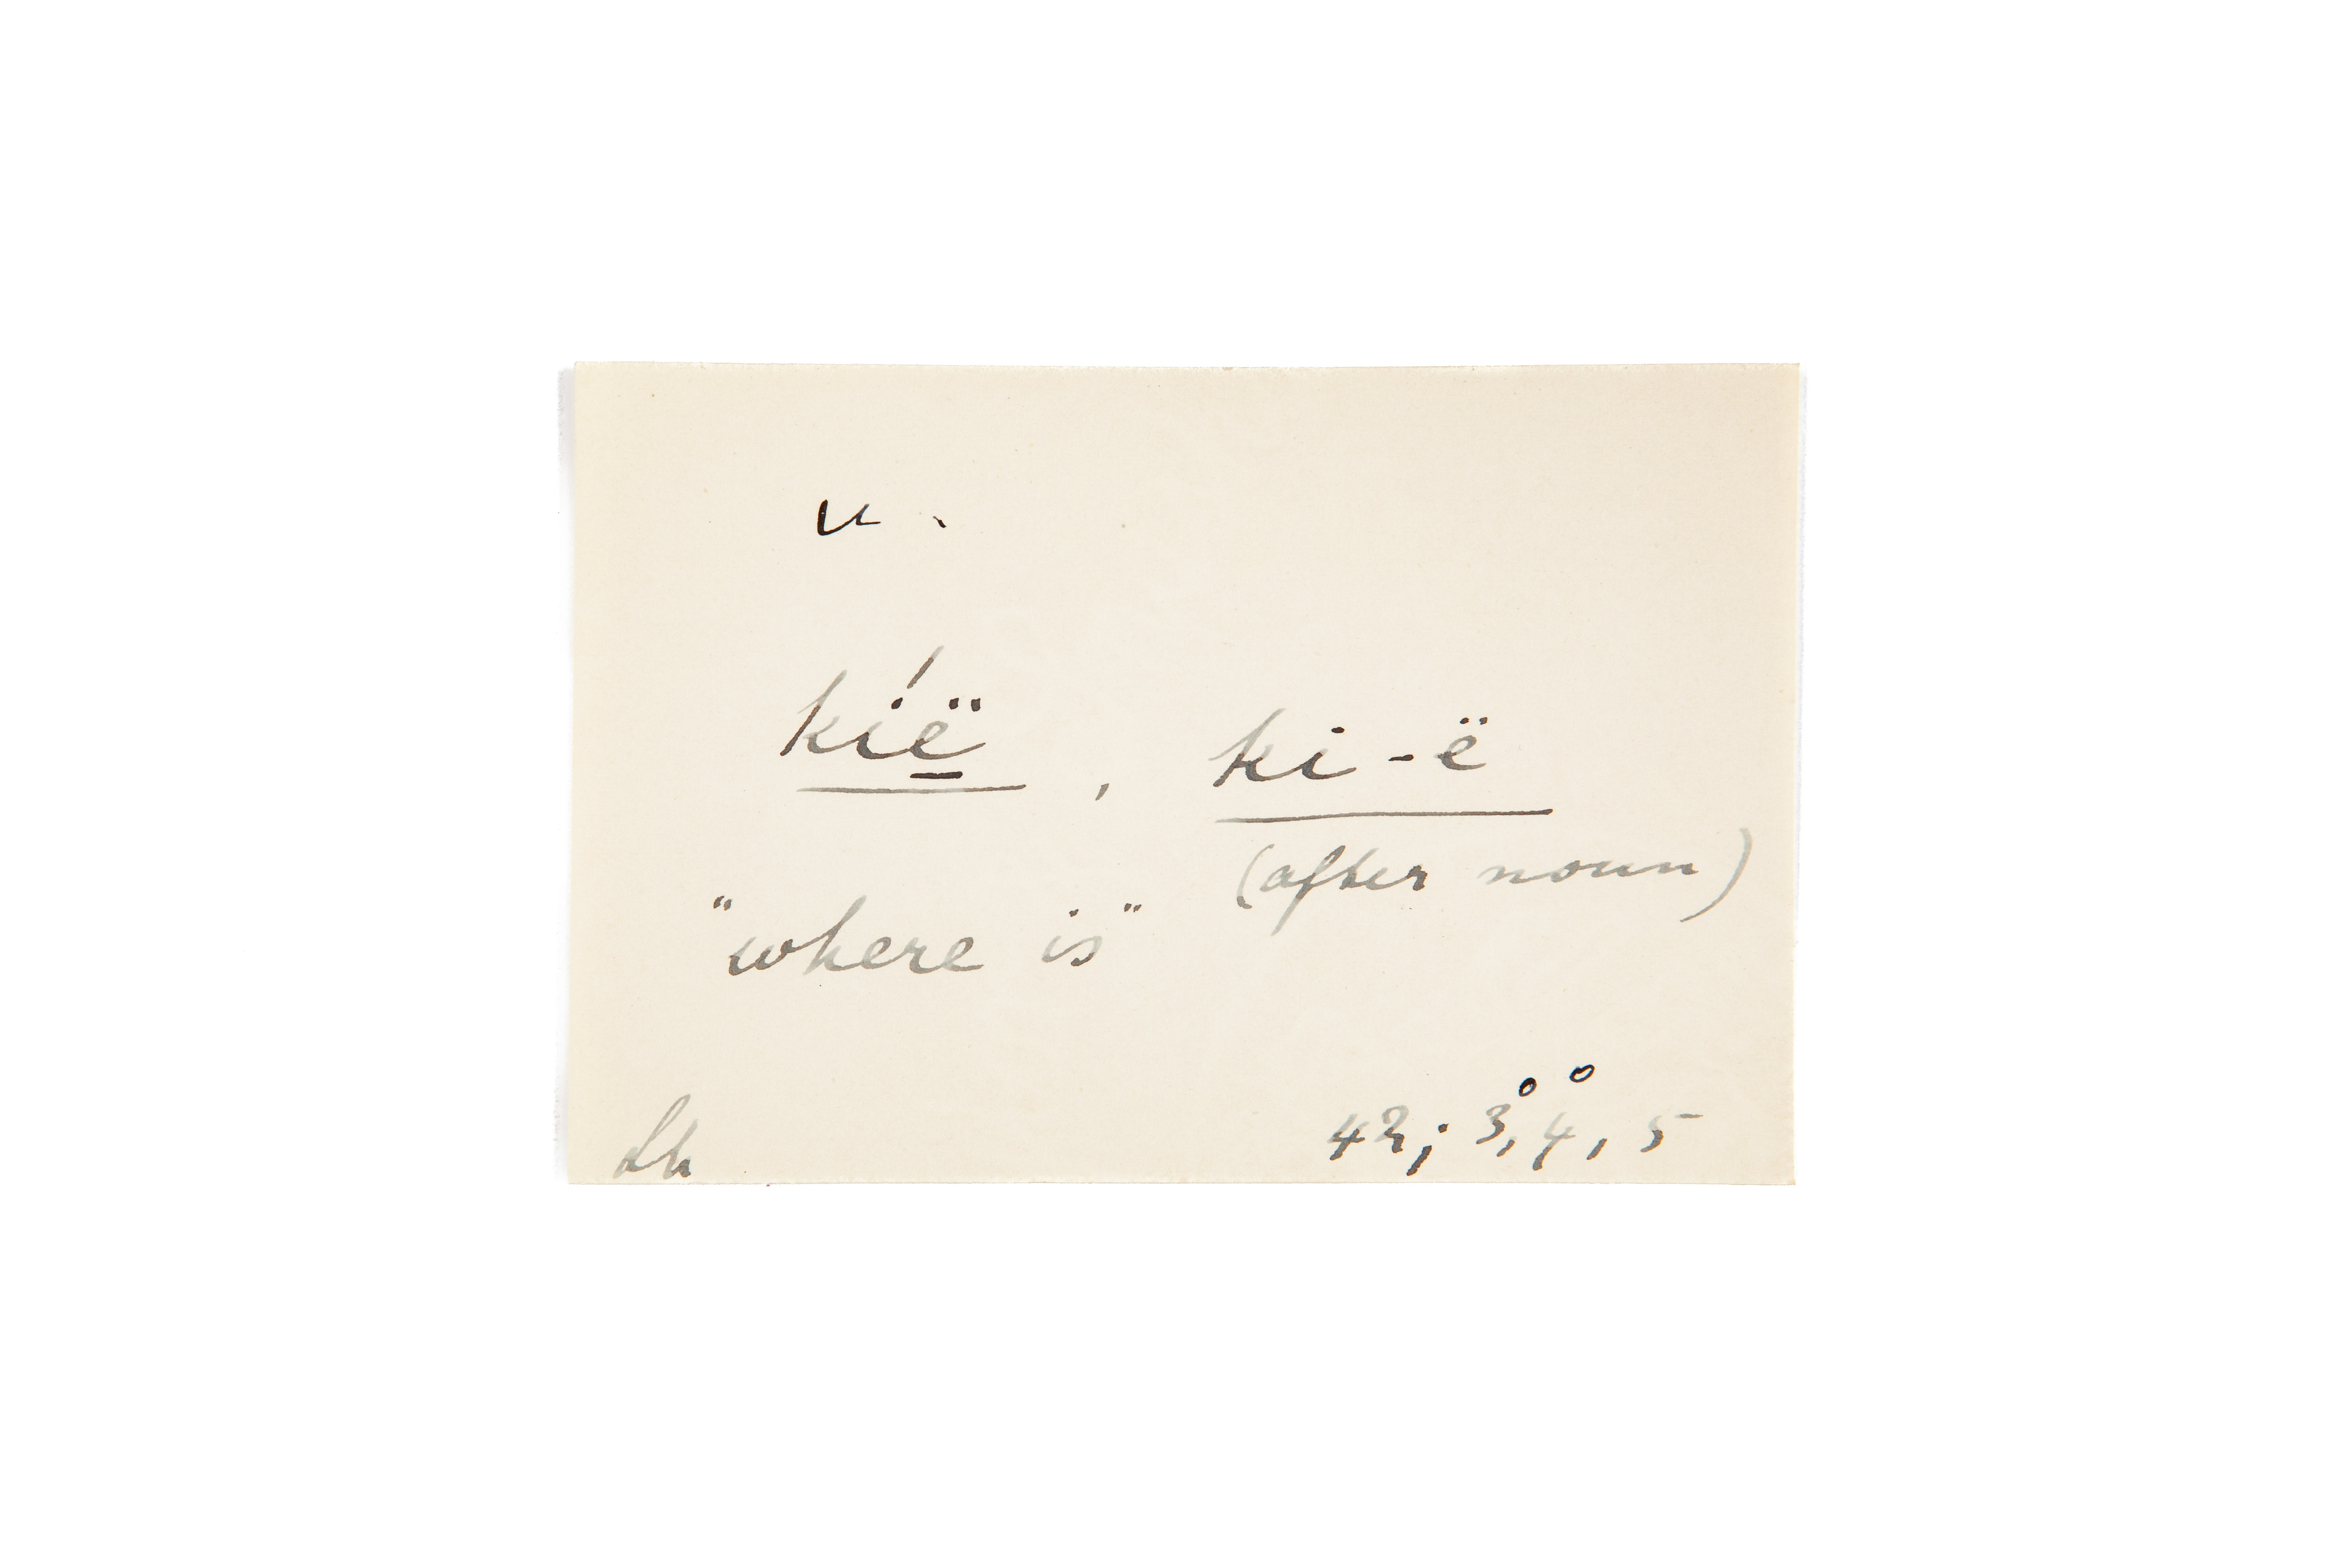 u.
kië́, ki-ë
(after noun)
"where is"
Lh 42; 3°, 4°, 5